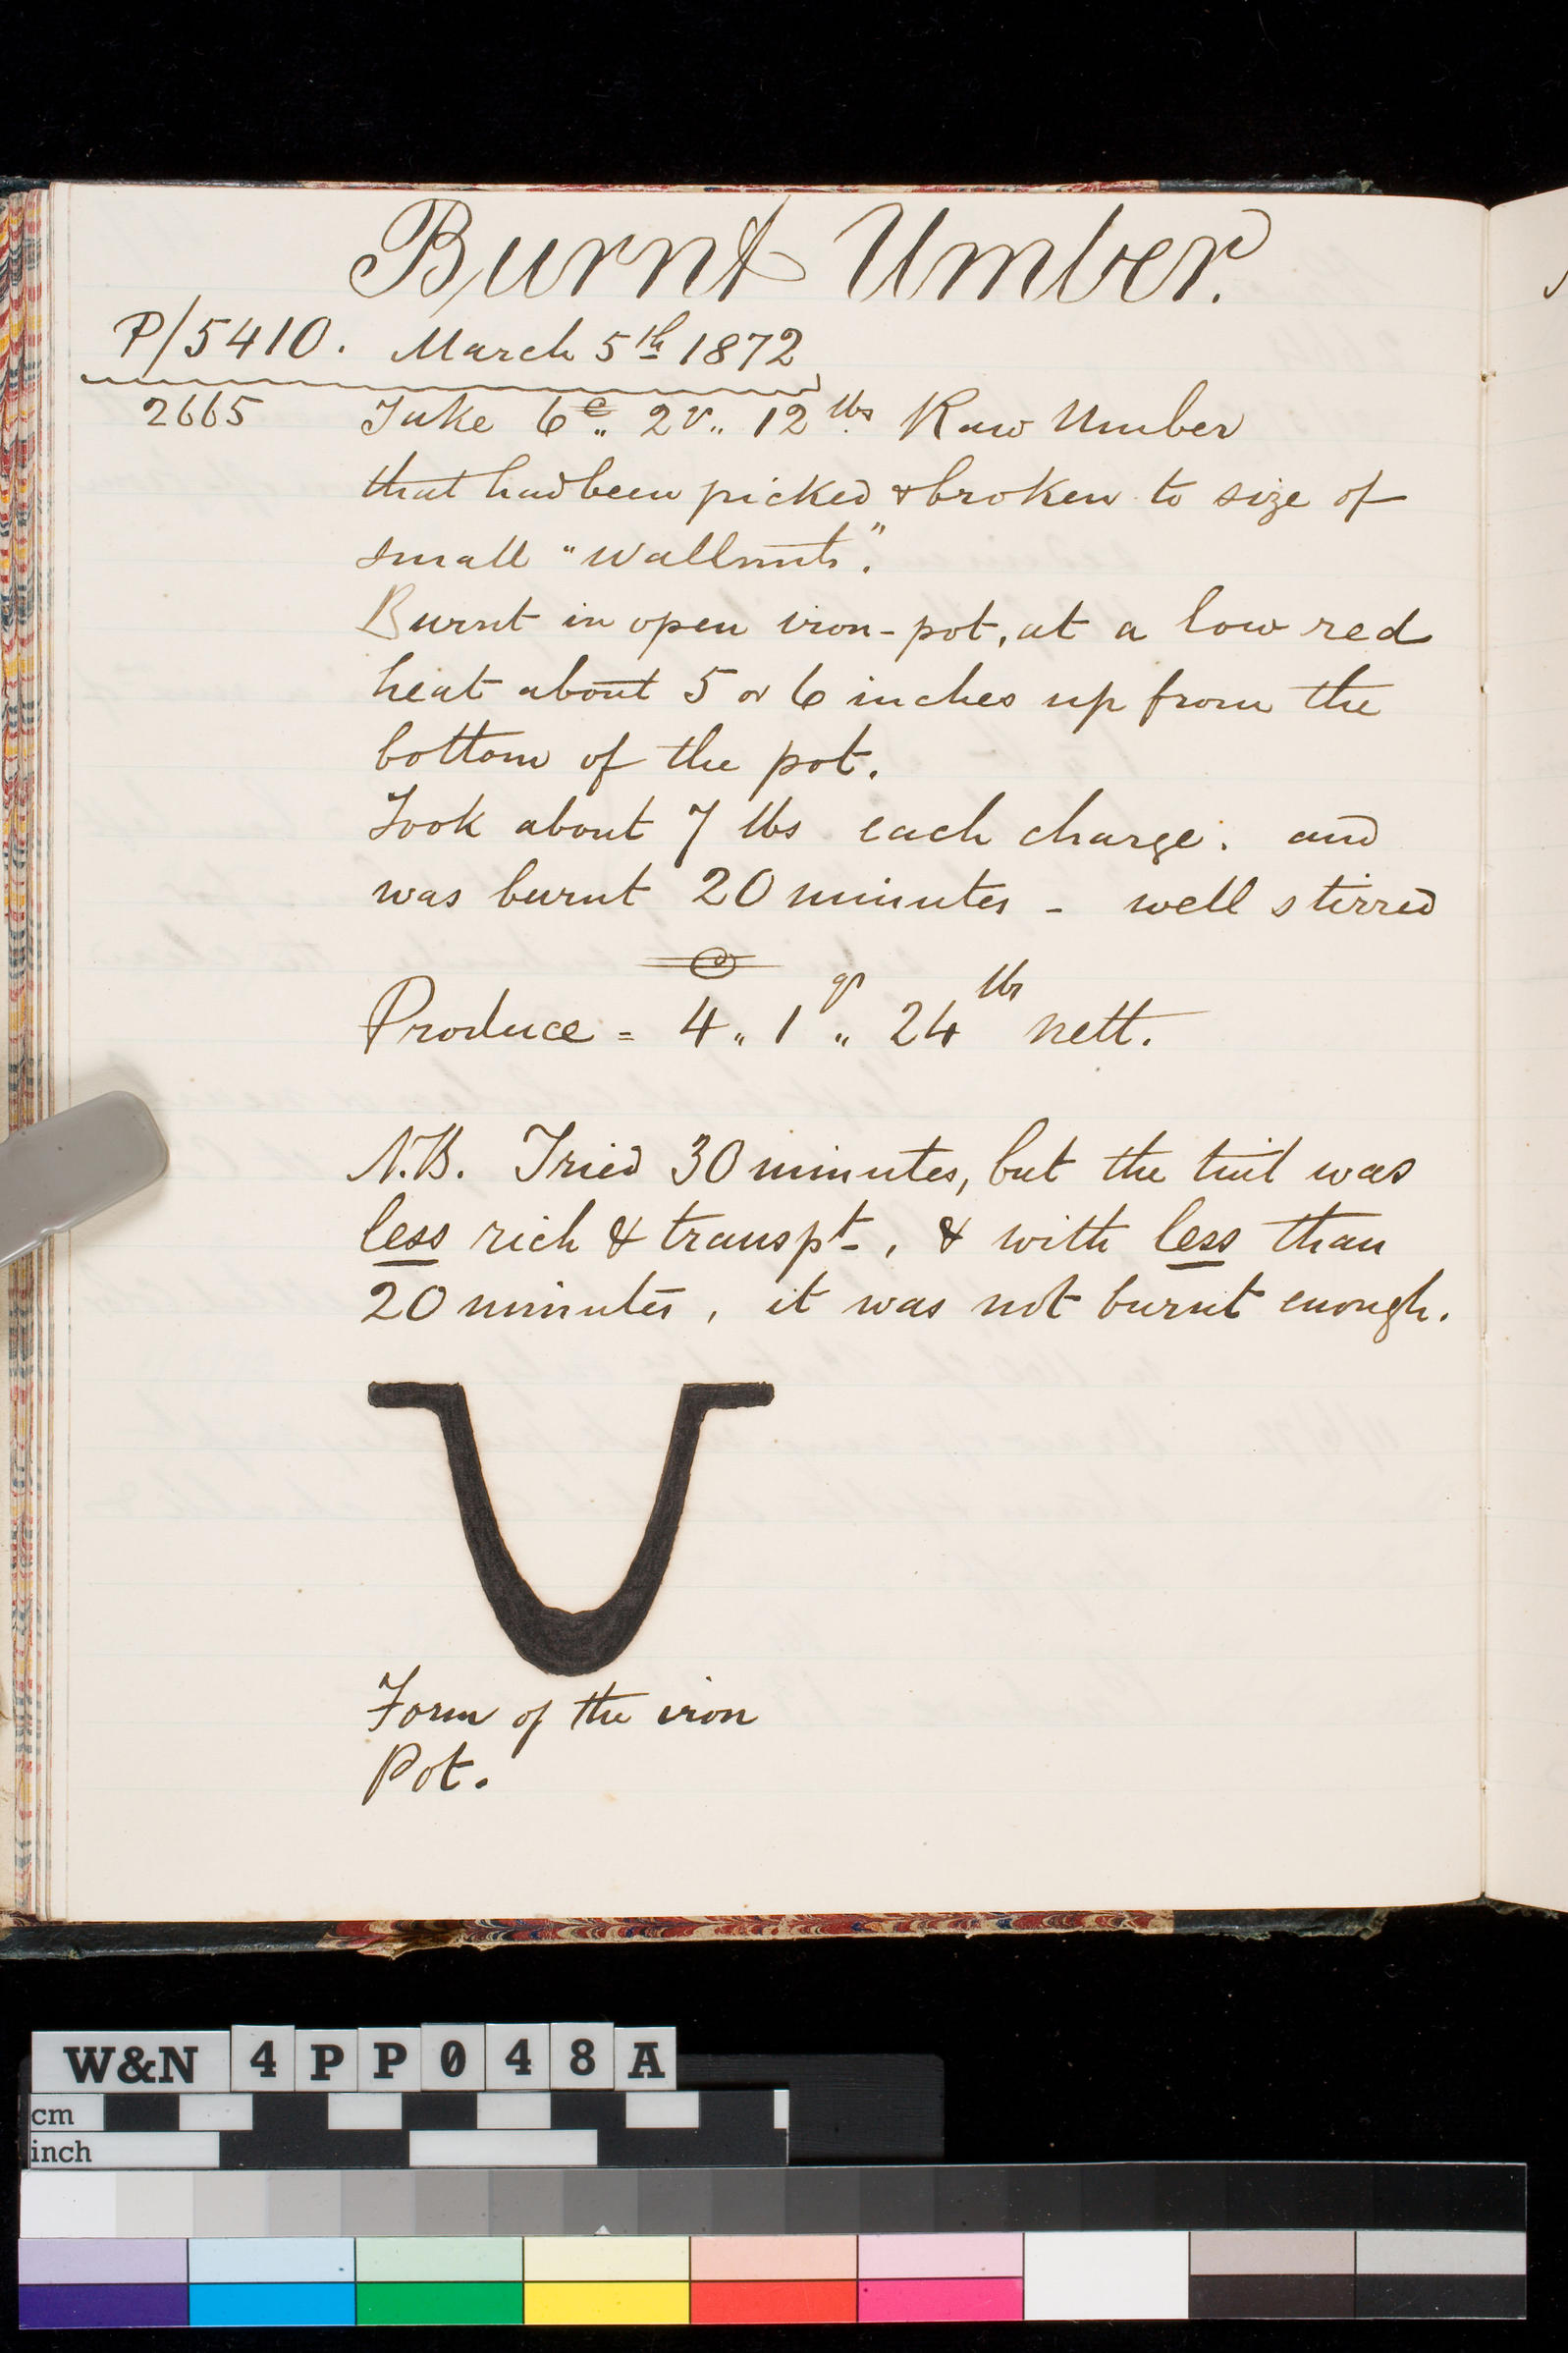 Burnt Umber.
P/5410. March 5th 1872
2665 Take 6c„ 2r„ 12 lbs Raw Umber
that had been picked & broken to size of
small "Wallnuts".
Burnt in open iron-pot, at a low red
heat about 5 or 6 inches up from the
bottom of the pot.
Took about 7 lbs each charge. and
was burnt 20 minutes - well stirred
Produce = 4„ 1 qr„ 24 lbs nett.
N.B. Tried 30 minutes, but the tint was
less rich & transpt-, & with less than
20 minutes, it was not burnt enough.
Form of the iron
Pot.
W&N 4PP048A
cm
inch